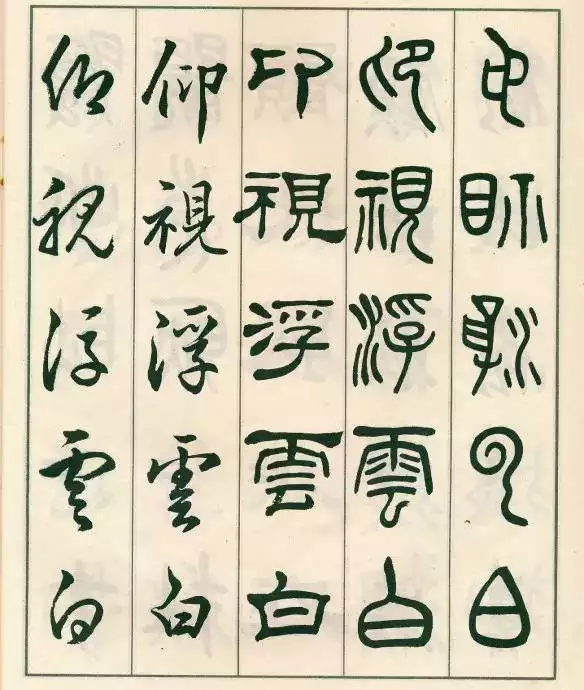 卬眎浮云白
卬視浮雲白
卬視浮雲白
仰視浮雲白
仰視浮雲白